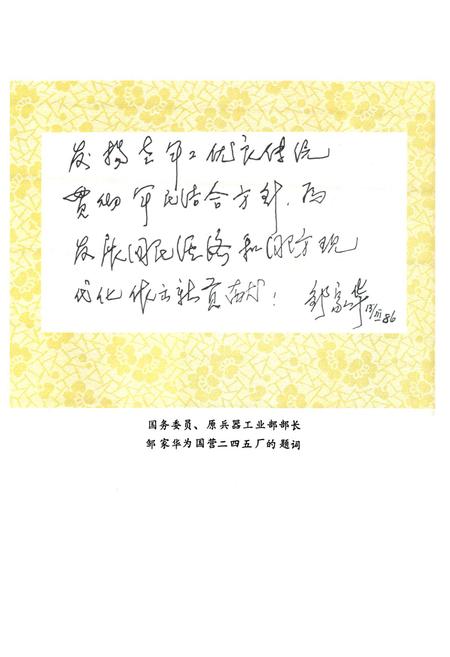 发扬老军工优良传统
贯彻军民结合方针，为
发展国民经济和国防现
代化作出新贡献！ 邹家华 13/III 86
国务委员、原兵器工业部部长
邹家华为国营二四五厂的题词